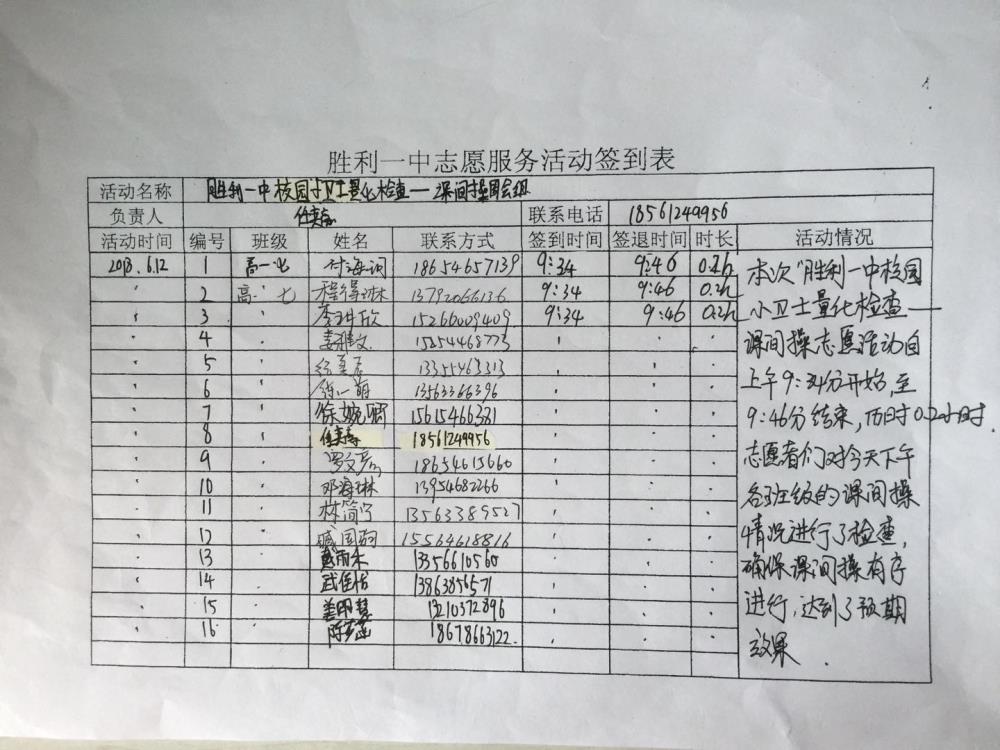 胜利一中志愿服务活动签到表
活动名称 胜利一中校园小卫士量化检查一课间操
负责人 联系电话 18561249956
活动时间 编号 班级 姓名 联系方式 签到时间 签退时间 时长 活动情况
2018.6.12 1 高一七 18654657139 9:34 9:46 0.2h 本次"胜利一中校园
2 高一七 程得琳 13792066136 9:34 9:46 0.2h 小卫士量化检查一
3 李玥欣 15266009409 9:34 9:46 0.2h 课间操志愿活动自
4 姜雅文 15254468773 上午9:34分开始,至
5 13355463313 9:46分结束,历时0.2小时.
6 陈一萌 13563366396 志愿者们对今天下午
7 徐婉 15615466381 各班级的课间操
8 18561249956 情况进行了检查,
9 18654615660 确保课间操有序
10 邓海琳 13954682266 进行,达到了预期
11 林简宁 13563389527 效果.
12 15564618816
13 戴雨禾 13356610560
14 武佳怡 13863856571
15 姜明慧 13210372896
16 18678663122.